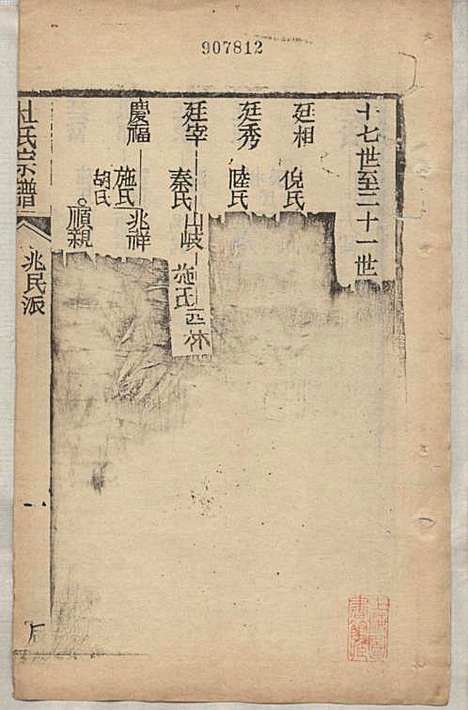 907812
十七世至二十一世
廷相
倪氏
廷秀
陸氏
廷宰
秦氏
山岐
施氏
西林
慶福
施氏
胡氏
兆祥
順親
杜氏宗譜
兆民派
一